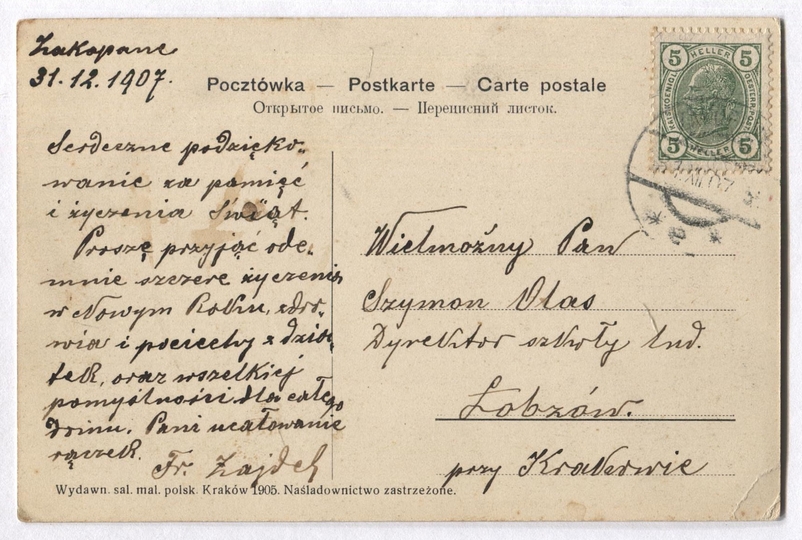 Zakopane
31.12.1907.
Pocztówka — Postkarte — Carte postale
Открытое письмо. — Переписний листок.
5 HELLER 5
KAIS. KOENIGL. OESTERR. POST
5 HELLER 5
Serdeczne podzięko-
wanie za pamięć
i życzenia Świąt.
Proszę przyjąć ode-
mnie szczere życzenia
w Nowym Roku, zdro-
wia i pociechy z dzia-
tek, oraz wszelkiej
pomyślności dla całego
domu. Pani ucałowanie
rączek.
Fr. Zajdel
Wielmożny Pan
Szymon Olas
Dyrektor szkoły lud.
Łobzów.
przy Krakowie
Wydawn. sal. mal. polsk. Kraków 1905. Naśladownictwo zastrzeżone.